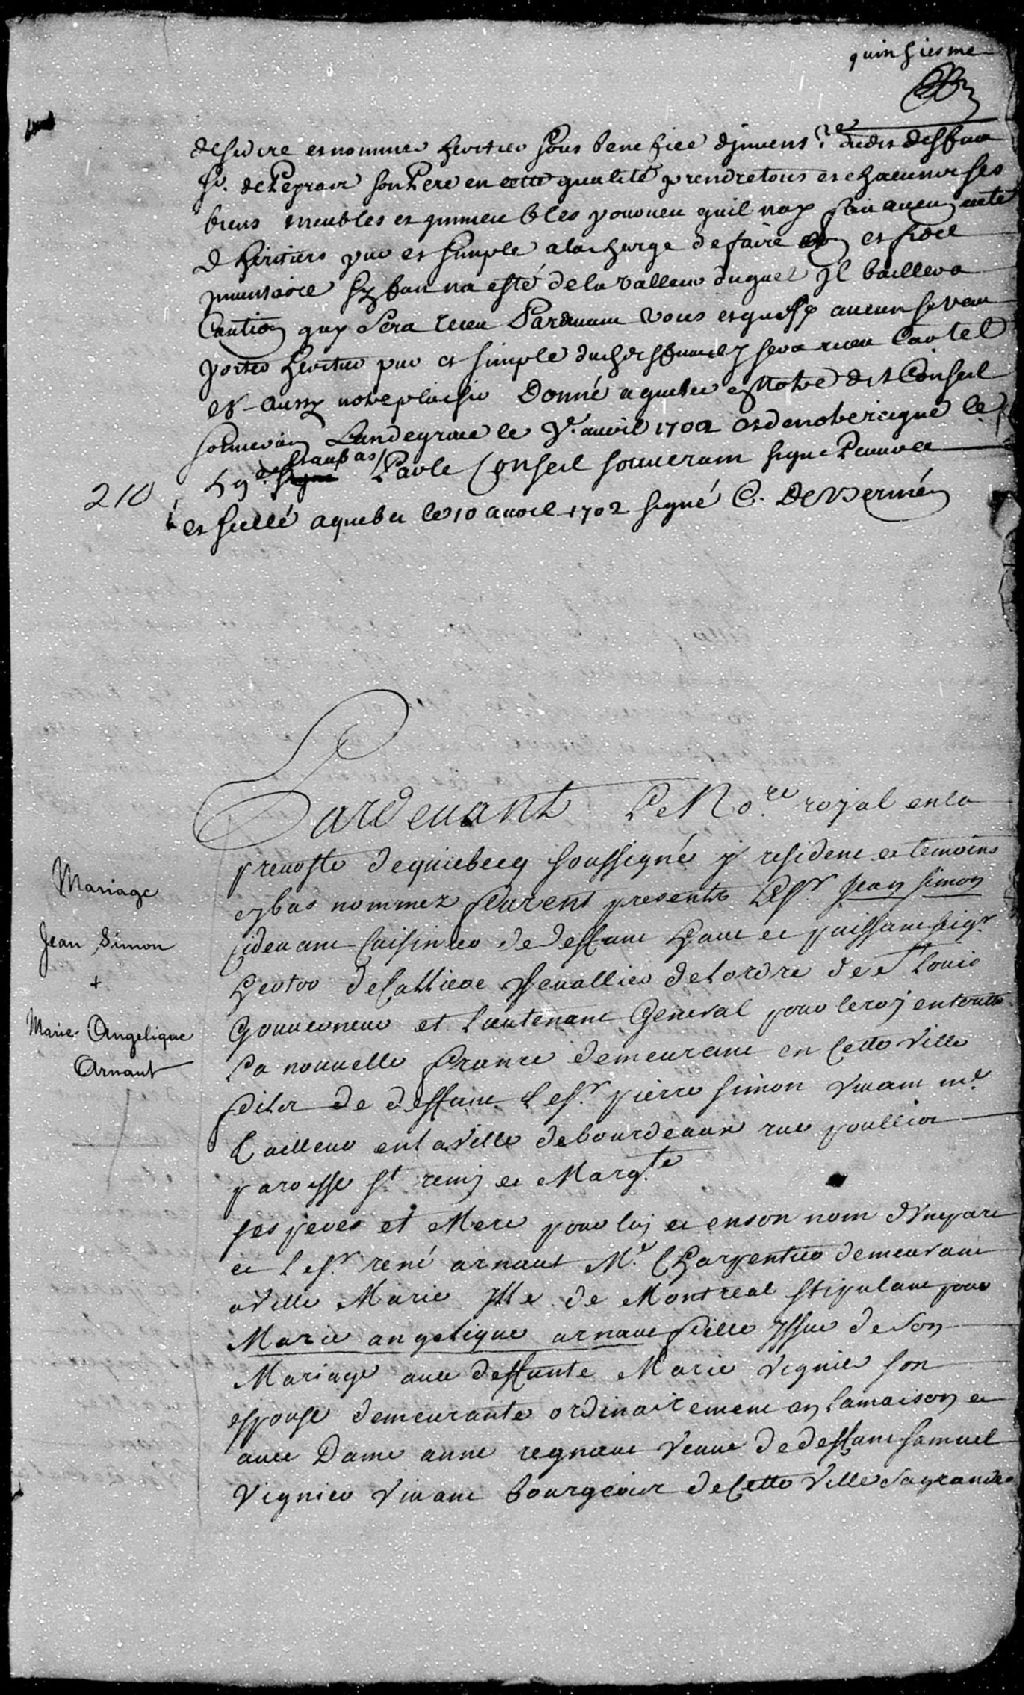 quinsiesme
desidre et nommer heritier sous benefice dinvent.re dudit deffun
Sr. de Lepraor son Pere en cette qualité prendre tous et chacun ses
biens meubles et immeubles pourveu quil nay fait aucun acte
D heritiers pur et simple a la charge de faire et fidel
inventaire sy fait na esté de la valleur duquel Jl baillera
Caution quy Sera receu Pardevant vous et que sy aucun se veut
porter heritier pur et simple dudit deffunt Jl sera receu Car tel
est aussy notre plaisir Donné a quebec en Notre dit Conseil
souverain Landeyrme le 7e. avril 1702 et de notre regne le
59e. signe plus bas Par le Conseil souverain signe Peuvret
210
et scellé a quebec le 10 avril 1702 signé C. De Vernié
Pardevant Le No.re royal en la
prevosté de quiebecq soussigné y resident et temoins
cy bas nommez furent presents Le Sr. Jean Simon
cydevant Cuisinier de deffunt haut et puissant seigr.
hector de Calliere Chevallier de lordre de St louis
Gouverneur et Lieutenant General pour le roy en toutte
La nouvelle France demeurant en cette ville
fils de deffunt Le Sr. pierre simon vivant me.
Tailleur en la ville de bourdeaux rue poullior
paroisse st remy et Marg.te
ses peres et Mere pour luy et en son nom d'une part
et Le Sr. rené arnaut Me. Charpentier demeurant
a Ville Marie Jsle de Montreal stipulant pour
Marie angelique arnaut fille Jssue de son
Mariage avec deffunte Marie vignier son
espouse demeurante ordinairement en la maison et
avec Dame anne regnaut veuve de deffunt samuel
Vignier vivant bourgeois de Cette Ville sa grande
Mariage
Jean Simon
+
Marie-Angelique
Arnaut